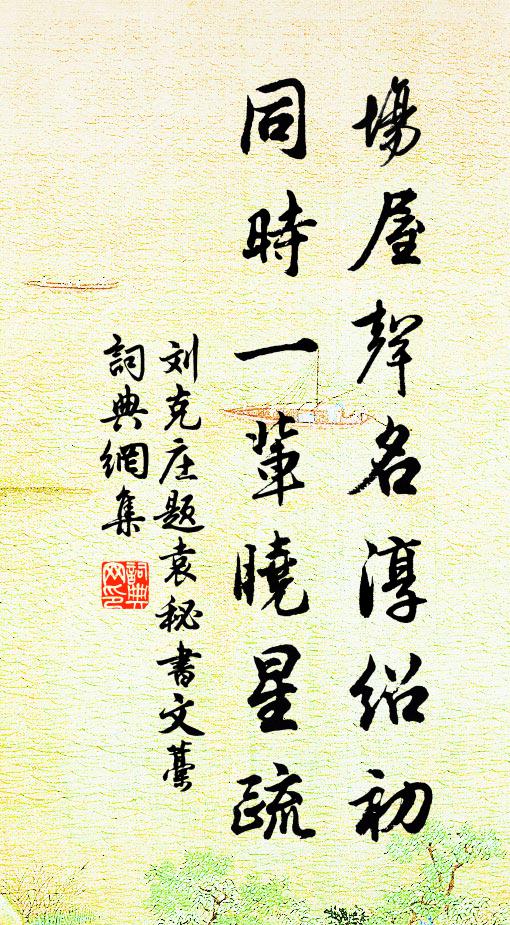 場屋聲名淳紹初
同時一輩曉星疏
刘克庄題袁秘書文藁
詞典網集
詞典網印